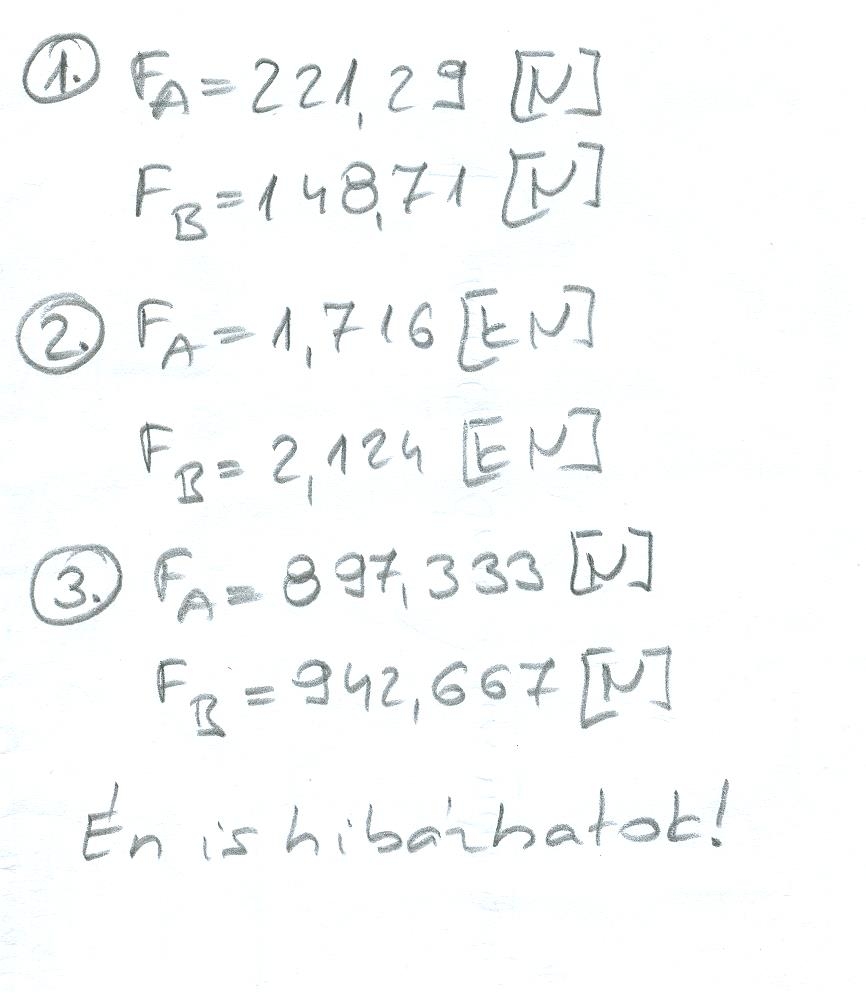 1. F_A = 221,29 [N]
F_B = 148,71 [N]
2. F_A = 1,716 [kN]
F_B = 2,124 [kN]
3. F_A = 897,333 [N]
F_B = 942,667 [N]
Én is hibázhatok!